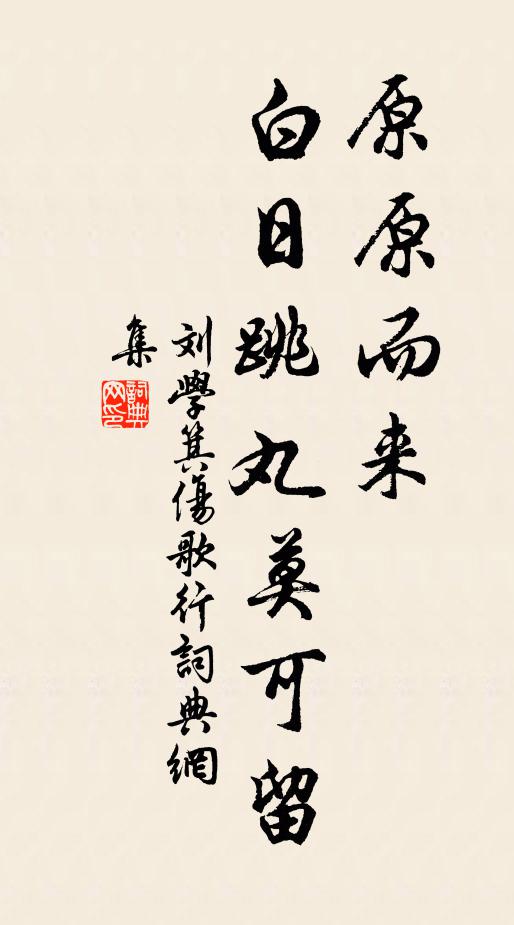 原原而来
白日跳丸莫可留
刘學箕傷歌行詞典網
集
詞典网印